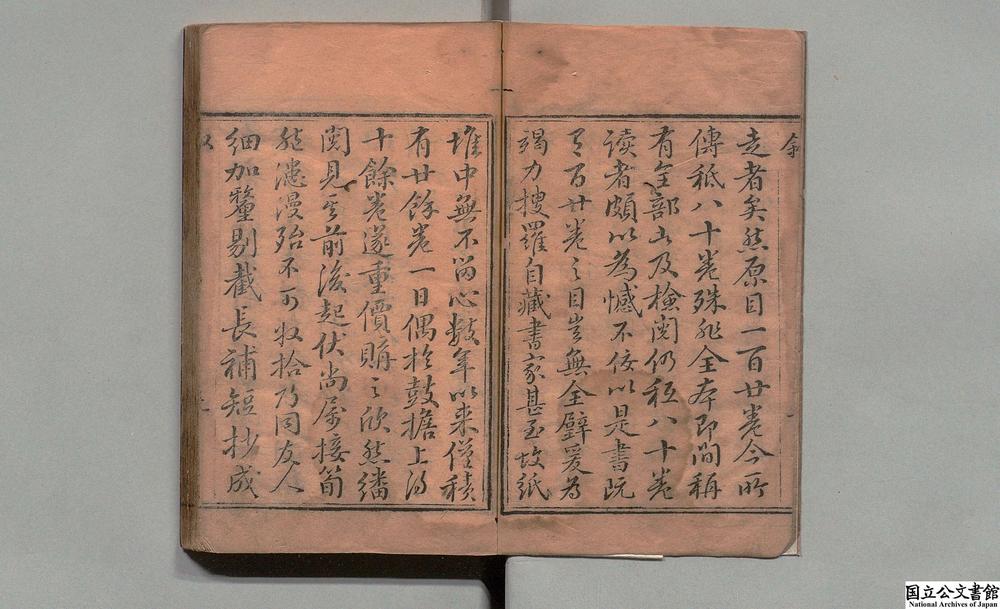 走者矣然原目一百廿卷今所
傳秪八十卷殊非全本即間稱
有全部者及檢閱仍秪八十卷
读者頗以為憾不佞以是書既
有百廿卷之目豈無全璧爰為
竭力搜羅自藏書家甚至故紙
堆中無不留心數年以來僅積
有廿餘卷一日偶於鼓擔上得
十餘卷遂重價購之欣然繙
閱見其前後起伏尚屬接笱
然漶漫殆不可収拾乃同友人
細加釐剔截長補短抄成
国立公文書館
National Archives of Japan